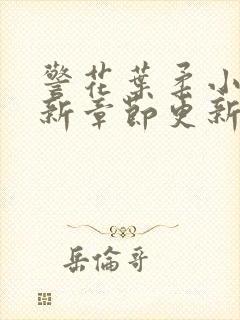 警花葉柔小
新章節更新
岳倫哥